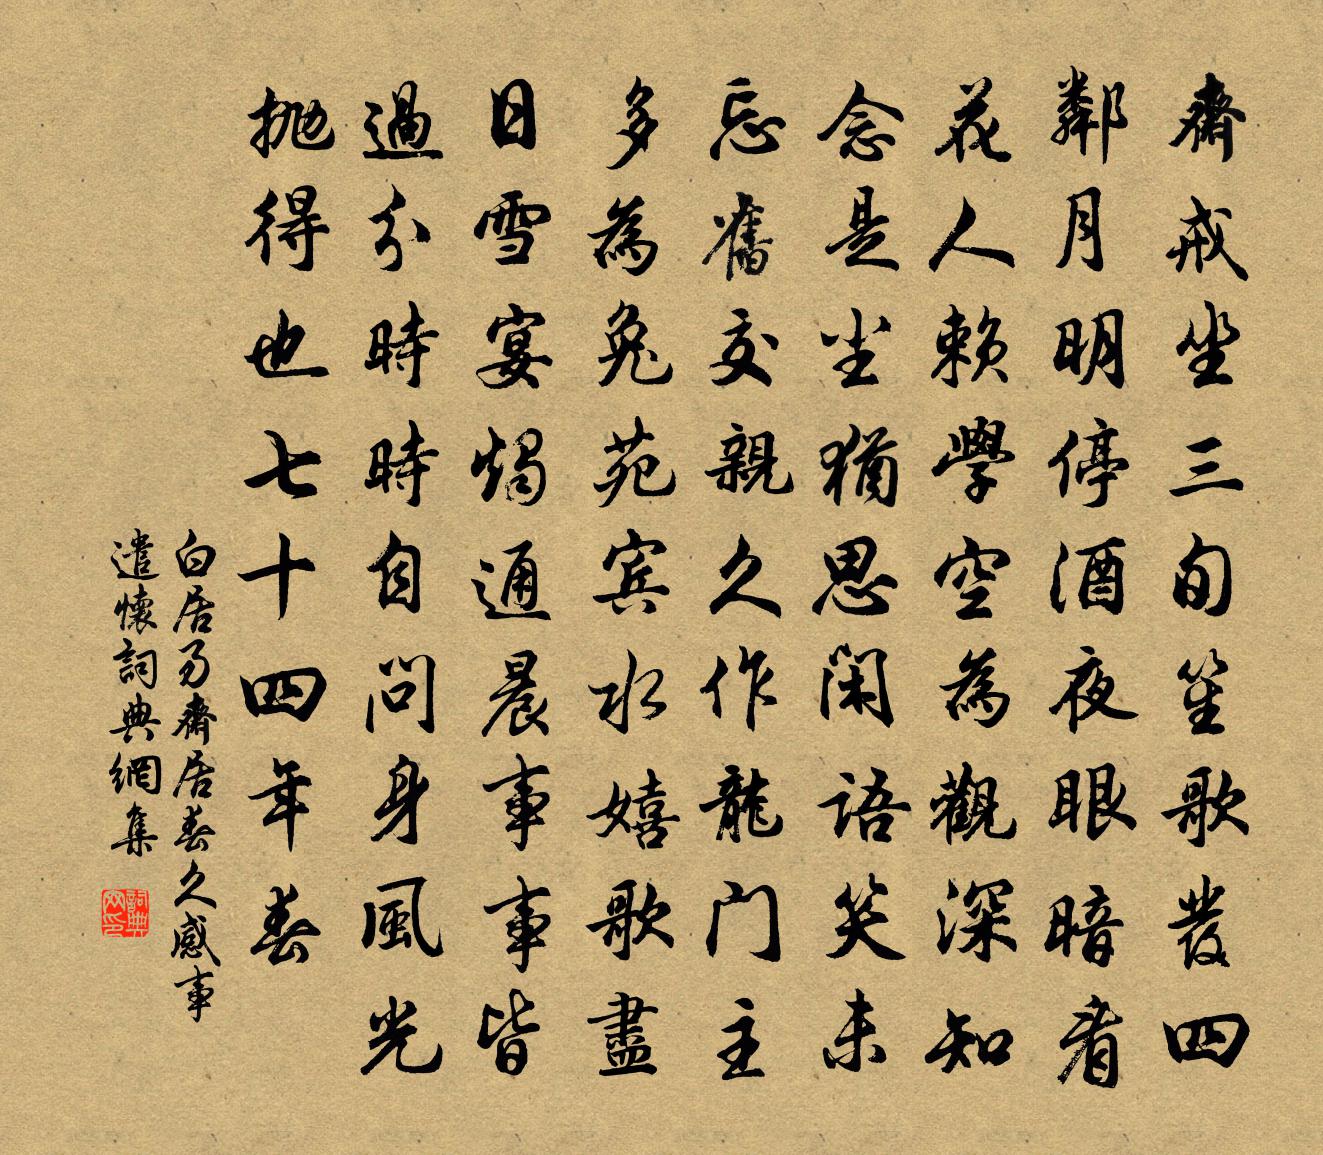 齋戒坐三旬笙歌發四
鄰月明停酒夜眼暗看
花人賴學空為觀深知
念是塵猶思閑語笑未
忘舊交親久作龍门主
多為兔苑賓水嬉歌盡
日雪宴燭通晨事事皆
過分時時自問身風光
拋得也七十四年春
白居易齋居春久感事
遣懷詞典網集
詞典网印